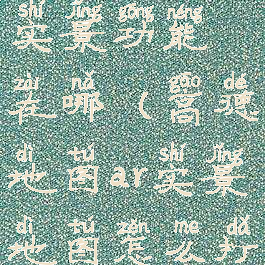 shí jǐng gōng néng
实景功能
zài nǎ gāo dé
在哪（高德
dì tú shí jǐng
地图ar实景
dì tú zěn me dǎ
地图怎么打